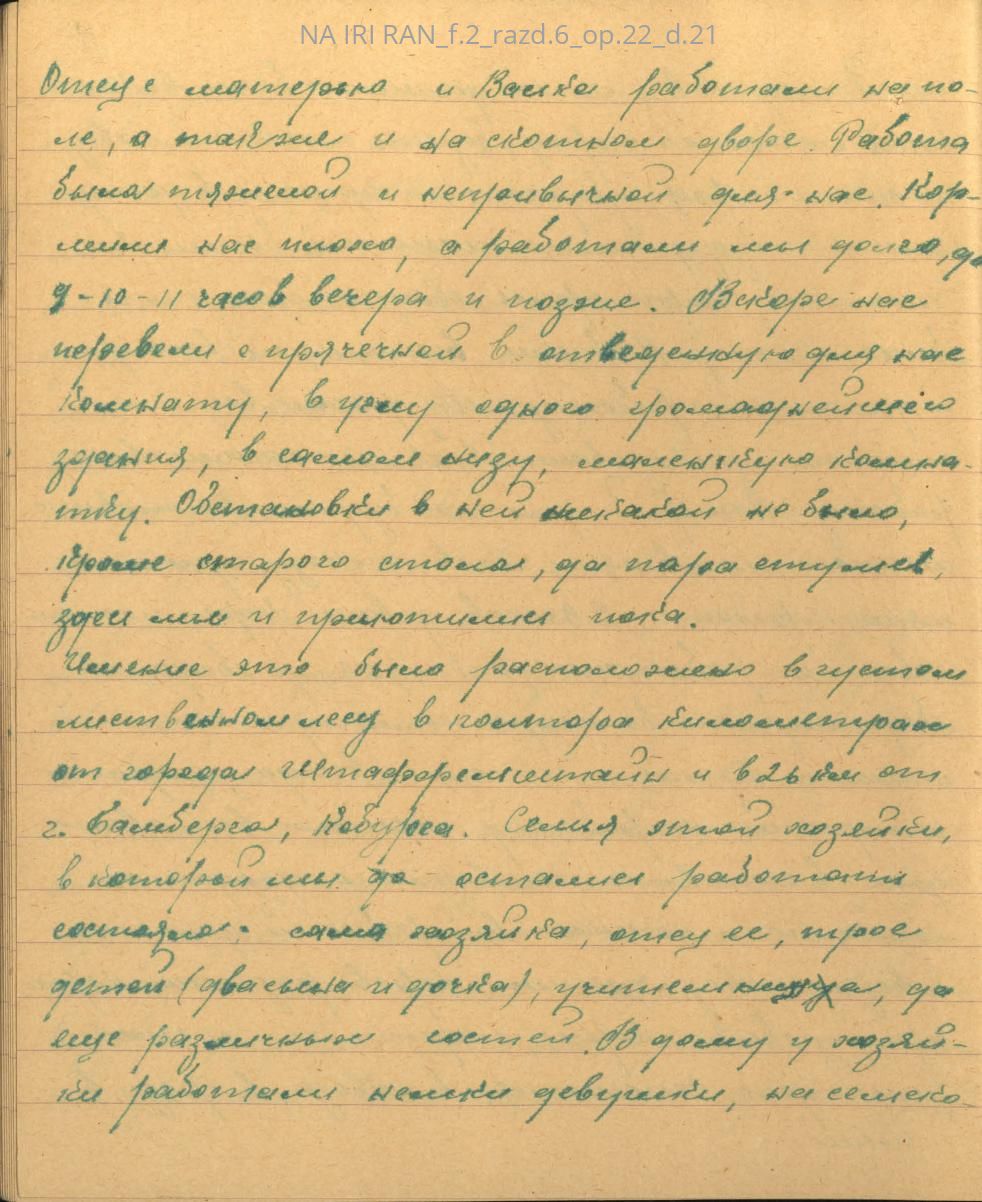 NA IRI RAN_f.2_razd.6_op.22_d.21
Отец с матерью и Васька работали на по-
ле, а также и на скотном дворе. Работа
была тяжелой и непривычной для нас. Кор-
мили нас плохо, а работали мы долго, до
9-10-11 часов вечера и позже. Вскоре нас
перевели с прачечной в отведенную для нас
комнату, в углу одного громаднейшего
здания, в самом низу, маленькую комна-
тку. Обстановки в ней никакой не было,
кроме старого стола, да пара стульев,
здесь мы и приютились пока.
Имение это было расположено в густом
лиственном лесу в полтора километрах
от города Штаффельштайн и в 26 км от
г. Бамберга, Кобурга. Семья этой хозяйки,
в которой мы остались работать
состояла: сама хозяйка, отец ее, трое
детей (два сына и дочка), учительница, да
еще различных гостей. В дому у хозяй-
ки работали немки девушки, на сельско-